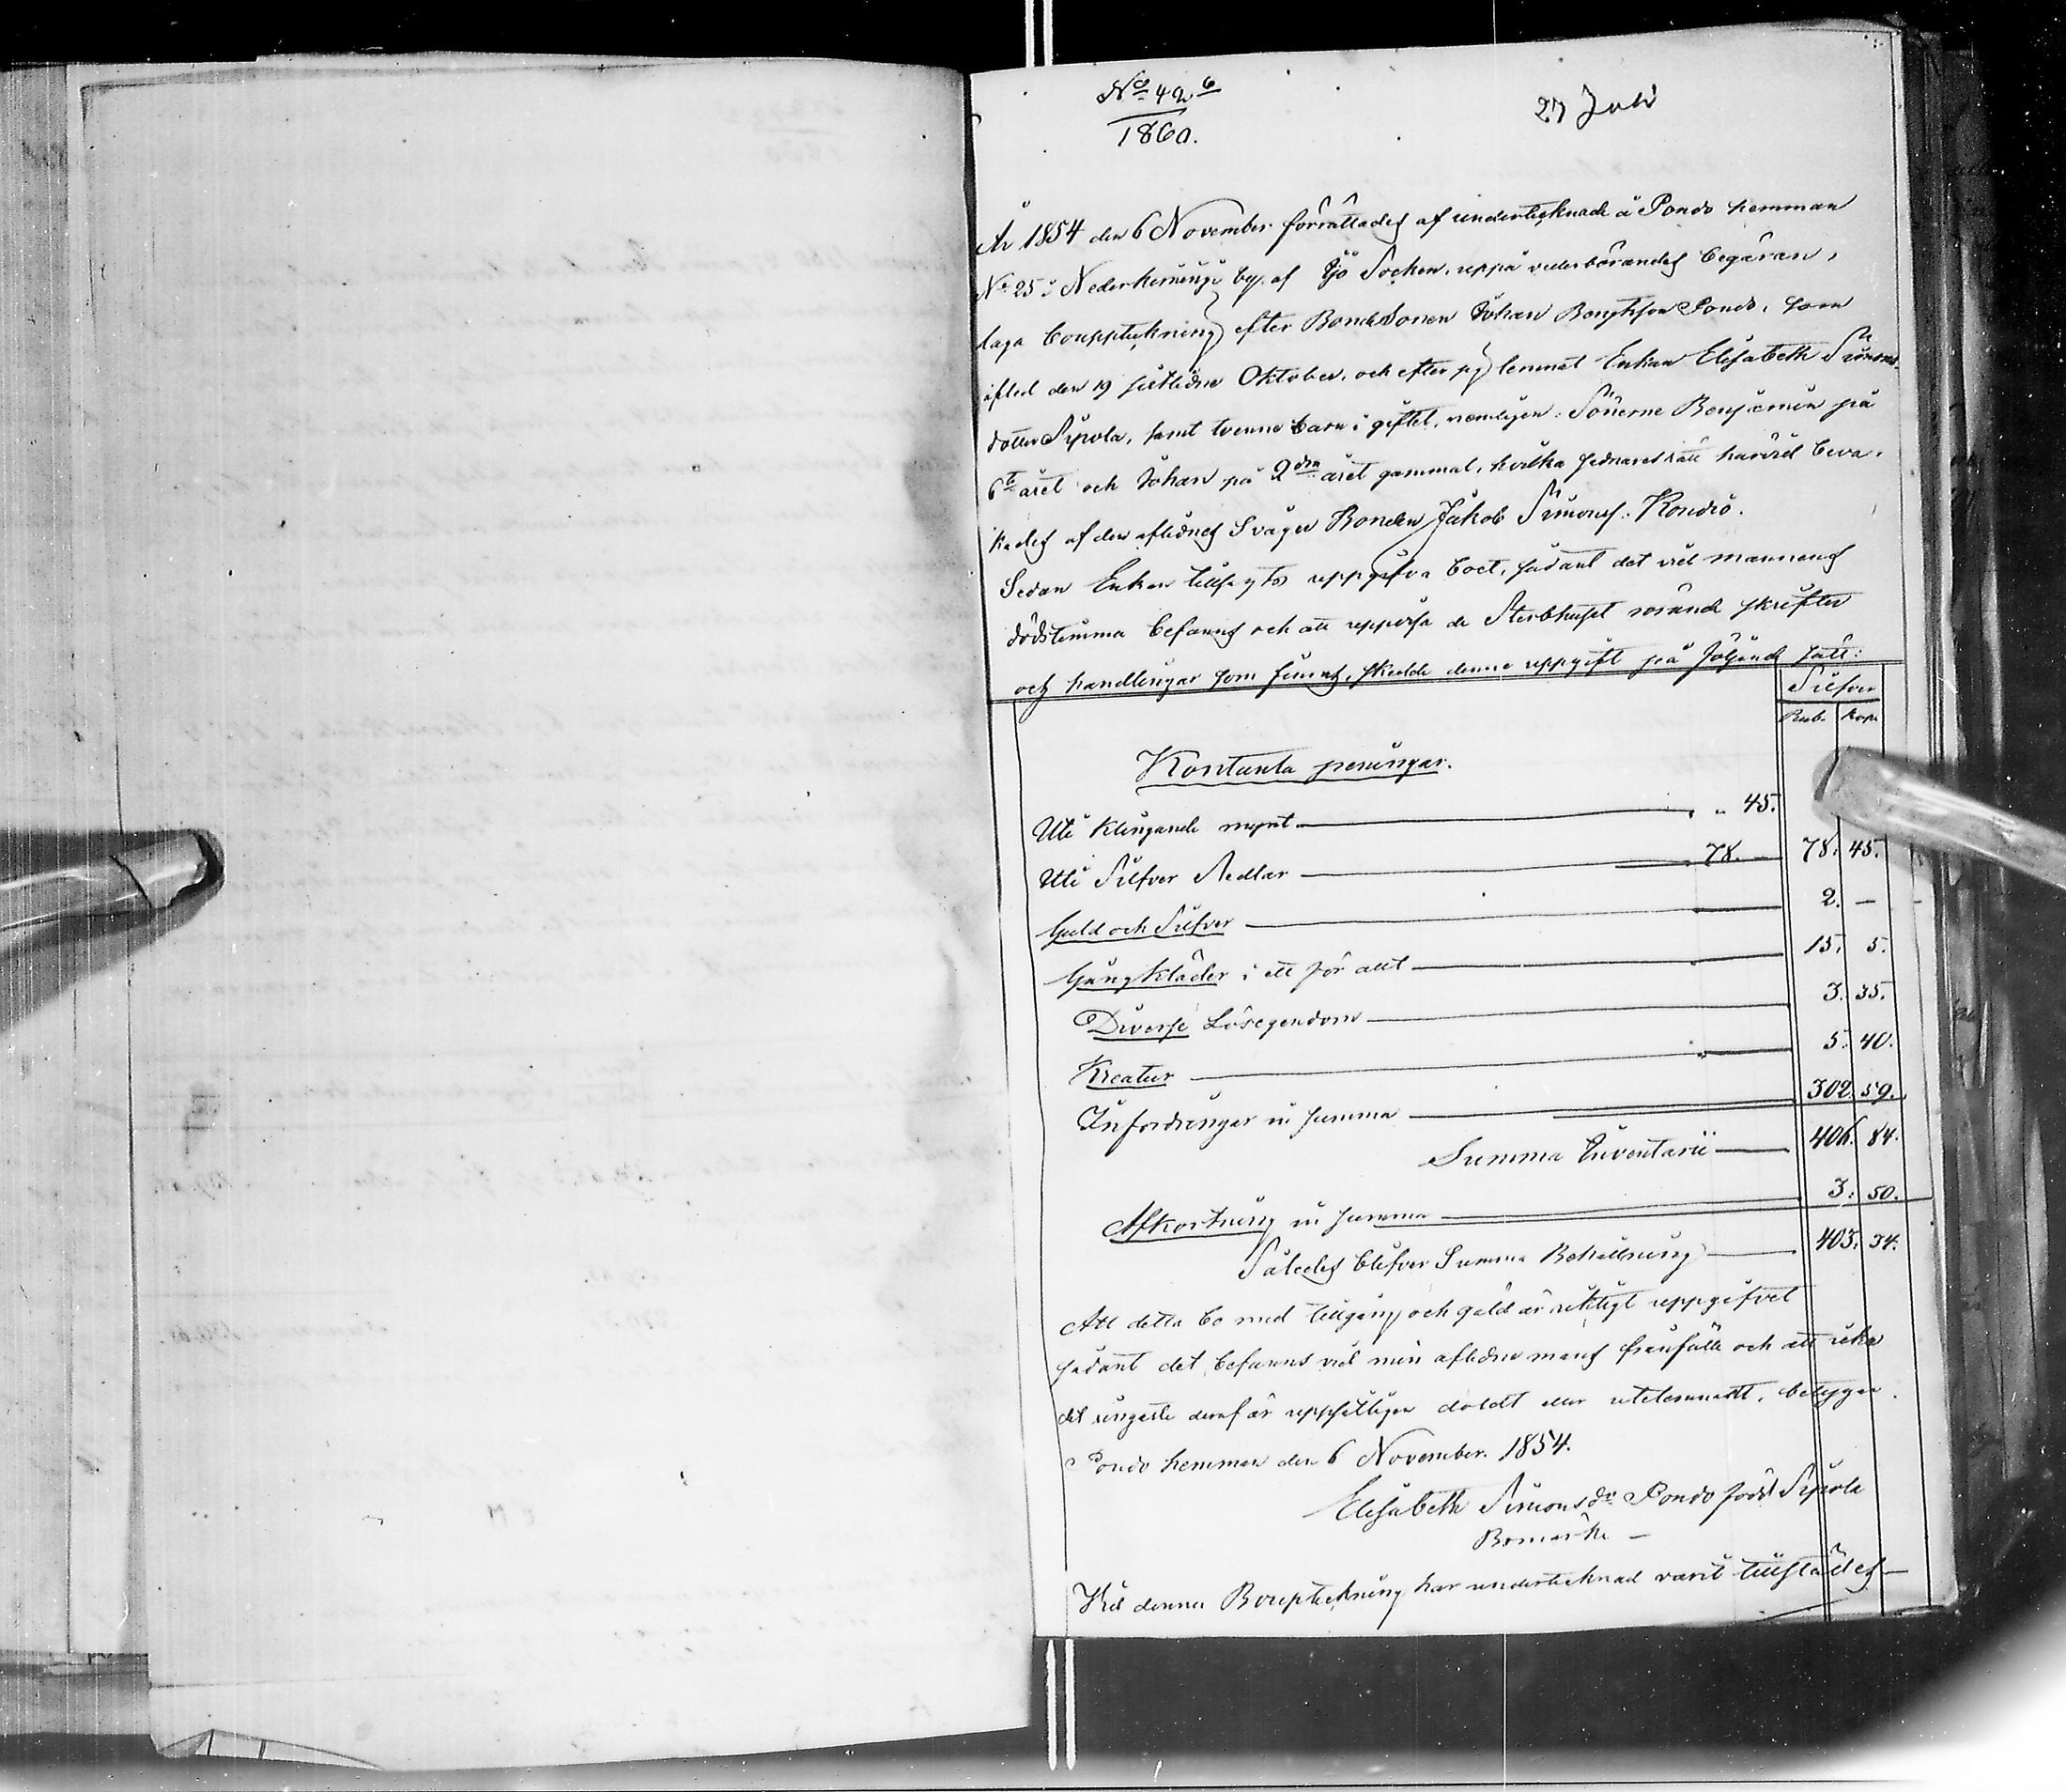 No 42 6
1860.
27 Juli
År 1854 den 6 November förrättades af undertecknade å Pondo hemman
No 25 i Nederkeminge by af Ijo Socken, uppå vederbörandes begäran,
laga Bouppteckning efter Bondesonen Johan Bengtsson Pondo, som
afled den 19 sistlidne Oktober, och efter sig lemnat Enkan Elisabeth Simons-
dotter Sipola, samt tvenne barn i giftet, nemligen: Sönerne Benjamin på
6te året och Johan på 2dra året gammal, hvilka sednares rätt härvid beva-
kades af den aflidnes Svåger Bonden Jakob Simonss. Kondio.
Sedan Enkan tillsagts uppgifva boet, sådant det vid mannens
dödstimma befanns och att uppvisa de Sterbhuset rörande skrifter
och handlingar som finnas, skedde denna uppgift på följande sätt:
Silfver
Rub. Kop.
Kontanta peningar.
Uti klingande mynt „ 45.
Uti Silfver Sedlar 78. — 78. 45.
Guld och Silfver 2. —
Gångkläder i ett för allt 15. 5.
Diverse Lösegendom 3. 35.
Kreatur 5. 40.
Infordringar in summa 302. 59.
Summa Inventarii 406. 84.
Afkortning in summa 3. 50.
Således blifver Summa Behållning 403. 34.
Att detta bo med tillgång och gäld är riktigt uppgifvet
sådant det befanns vid min aflidne mans frånfälle och att icke
det ringaste deraf är uppsåtligen doldt eller utelemnadt, betygar.
Pondo hemman den 6 November. 1854.
Elisabeth Simonsdr Pondo född Sipola
Bomärke —
Vid denna Bouppteckning har undertecknad varit tillstädes —